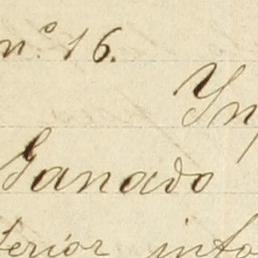 nº 16.
Yn
Ganado
terior info